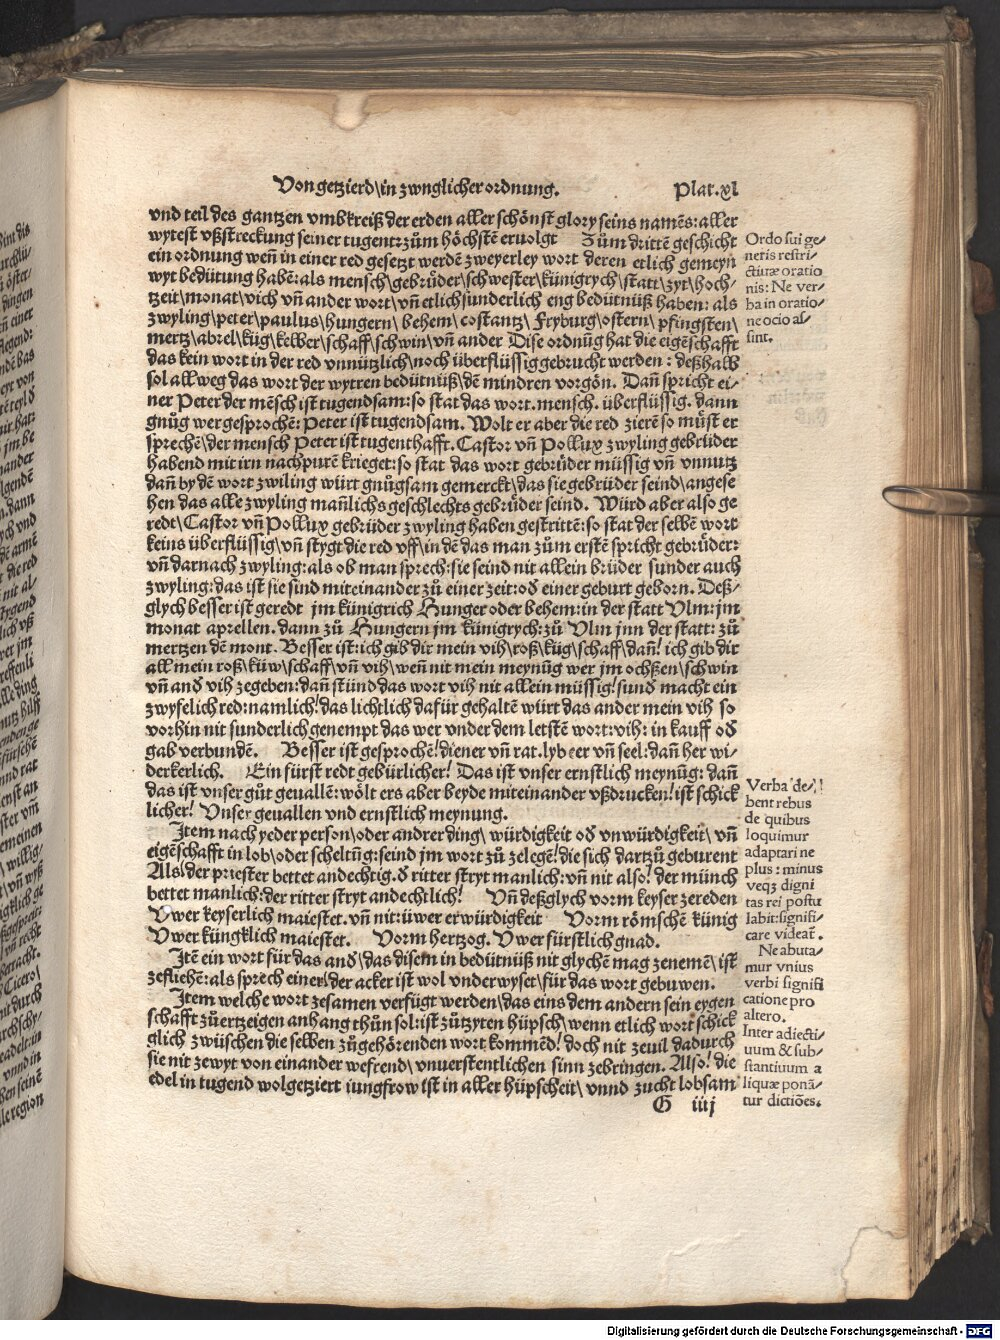 Von getzierd\in zwnglicher ordnung. Plat.xl
vnd teil des gantzen vmbkreiß der erden aller schönst glory seins namēs: aller
wytest vßstreckung seiner tugent: zům höchstē ervolgt Zům drittē geschicht
ein ordnung weñ in einer red gesetzt werdē zweyerley wort deren etlich gemeyn
wyt bedütung habē: als mensch\gebrůder\schwester\künigrych\statt\zyt\hoch-
tzeit\monat\vich vñ ander wort\vñ etlich sunderlich eng bedütnüß haben: als
zwyling\peter\paulus\hungern\behem\costantz\Fryburg\ostern\pfingsten\
mertz\abrel\küg\kelber\schaff\schwin\vñ ander Dise ordnūg hat die eigēschafft
das kein wort in der red vnnützlich\noch überflüssig gebrucht werden: deßhalb
sol allweg das wort der wytren bedütnüß\dē mindren vorgōn. Dañ spricht ei-
ner Peter der mēsch ist tugendsam: so stat das wort. mensch. überflüssig. dann
gnůg wer gesprochē: Peter ist tugendsam. Wolt er aber die red zierē so můst er
sprechē\der mensch Peter ist tugenthafft. Castor vñ Pollux zwyling gebrüder
habend mit irn nachpurē krieget: so stat das wort gebrůder müssig vñ vnnutz
dañ by dē wort zwiling würt gnůgsam gemerckt\das sie gebrüder seind\angese
hen das alle zwyling mañlichs geschlechts gebrůder seind. Würd aber also ge
redt\Castor vñ Pollux gebrüder zwyling haben gestrittē: so stat der selbē wort
keins überflüssig\vñ stygt die red vff\in dē das man zům erstē spricht gebrüder:
vñ darnach zwyling: als ob man sprech: sie seind nit allein brüder sunder auch
zwyling: das ist sie sind miteinander zů einer zeit: od einer geburt geborn. Deß-
glych besser ist geredt jm künigrich Hunger oder behem: in der statt Vlm: jm
monat aprellen. dann zů Hungern jm künigrych: zů Vlm jnn der statt: zů
mertzen dē mont. Besser ist: ich gib dir mein vih\roß\küg\schaff\dañ! ich gib dir
all mein roß\küw\schaff\vñ vih\weñ nit mein meynūg wer jm ochßen\schwin
vñ and vih zegeben: dañ stünd das wort vih nit allein müssig! sund macht ein
zwyfelich red: namlich! das lichtlich dafür gehaltē würt das ander mein vih so
vorhin nit sunderlich genempt das wer vnder dem letstē wort: vih: in kauff od
gab verbundē. Besser ist gesprochē! diener vñ rat. lyb eer vñ seel: dañ her wi-
derkerlich. Ein fürst redt gebürlicher! Das ist vnser ernstlich meynūg: dañ
das ist vnser gůt geuallē: wölt ers aber beyde miteinander vßdrucken! ist schick
licher! Vnser geuallen vnd ernstlich meynung.
Item nach yeder person\oder andrer ding\würdigkeit od vnwürdigkeit\vñ
eigēschafft in lob\oder scheltūg: seind jm wort zů zelegē! die sich dartzů geburent
Als! der priester bettet andechtig. d ritter stryt manlich: vñ nit also! der münch
bettet manlich: der ritter stryt andechtlich! Vñ deßglych vorm keyser zereden
Vwer keyserlich maiestet. vñ nit: üwer erwürdigkeit Vorm römschē künig
Vwer küngklich maiestet. Vorm hertzog. Vwer fürstlich gnad.
Itē ein wort für das and\das disem in bedütnüß nit glychē mag zenemē\ist
zefliehē: als sprech einer\der acker ist wol vnderwyset\für das wort gebuwen.
Item welche wort zesamen verfügt werden\das eins dem andern sein eygen
schafft zůertzeigen anhang thůn sol: ist zůtzyten hüpsch\wenn etlich wort schick
glich zwüschen die selben zůgehörenden wort kommēd! doch nit zeuil dadurch
sie nit zewyt von einander wefrend\vnuerstentlichen sinn zebringen. Also! die
edel in tugend wolgetziert iungfrow ist in aller hüpscheit\vnnd zucht lobsam
G iiij
Ordo sui ge/
neris restri/
ctiuæ oratio
nis: Ne ver/
ba in oratio/
ne ocio as/
sint.
Verba de/
bent rebus
de quibus
loquimur
adaptari ne
plus: minus
veqȝ digni
tas rei postu
labit: signifi/
care videat̄.
Ne abuta/
mur vnius
verbi signifi
catione pro
altero.
Inter adiecti/
uum & sub/
stantiuum a
liquæ ponā/
tur dictiōes.
Digitalisierung gefördert durch die Deutsche Forschungsgemeinschaft - DFG